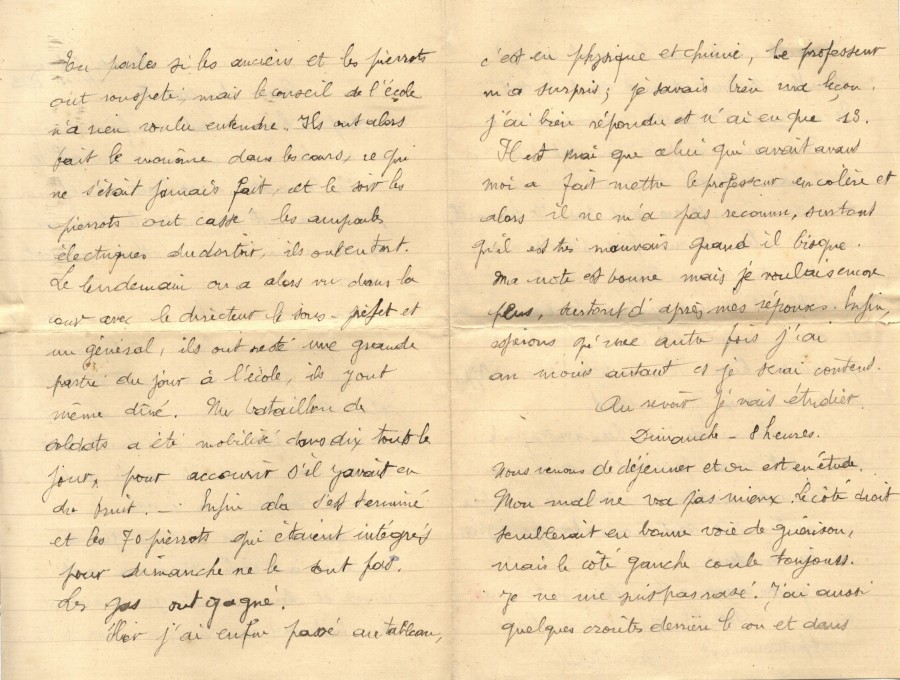 Tu parles si les anciens et les pierrots
ont rouspété, mais le conseil de l'école
n'a rien voulu entendre. Ils ont alors
fait le monôme dans les cours, ce qui
ne s'était jamais fait, et le soir les
pierrots ont cassé les ampoules
électriques du dortoir, ils ont eu tort.
Le lendemain on a alors vu dans la
cour avec le directeur le sous-préfet et
un général, ils ont resté une grande
partie du jour à l'école, ils y ont
même dîné. Un bataillon de
soldats a été mobilisé dans tout le
jour, pour accourir s'il y avait eu
du bruit. — Enfin cela s'est terminé
et les 70 pierrots qui étaient intégrés
pour dimanche ne le sont pas.
Les gas ont gagné.
Hier j'ai enfin passé au tableau,
c'est en physique et chimie, le professeur
m'a surpris; je savais bien ma leçon.
j'ai bien répondu et n'ai eu que 13.
Il est vrai que celui qui avait avant
moi a fait mettre le professeur en colère et
alors il ne m'a pas reconnu, surtout
qu'il est très mauvais quand il bisque.
Ma note est bonne mais je voulais encore
plus, surtout d'après mes réponses. Enfin,
espérons qu'une autre fois j'ai
au moins autant et je serai content.
Au revoir je vais étudier.
Dimanche - 8 heures.
Nous venons de déjeuner et on est en étude.
Mon mal ne va pas mieux. Le côté droit
semblerait en bonne voie de guérison,
mais le côté gauche coule toujours.
Je ne me suis pas rasé. J'ai aussi
quelques croûtes derrière le cou et dans